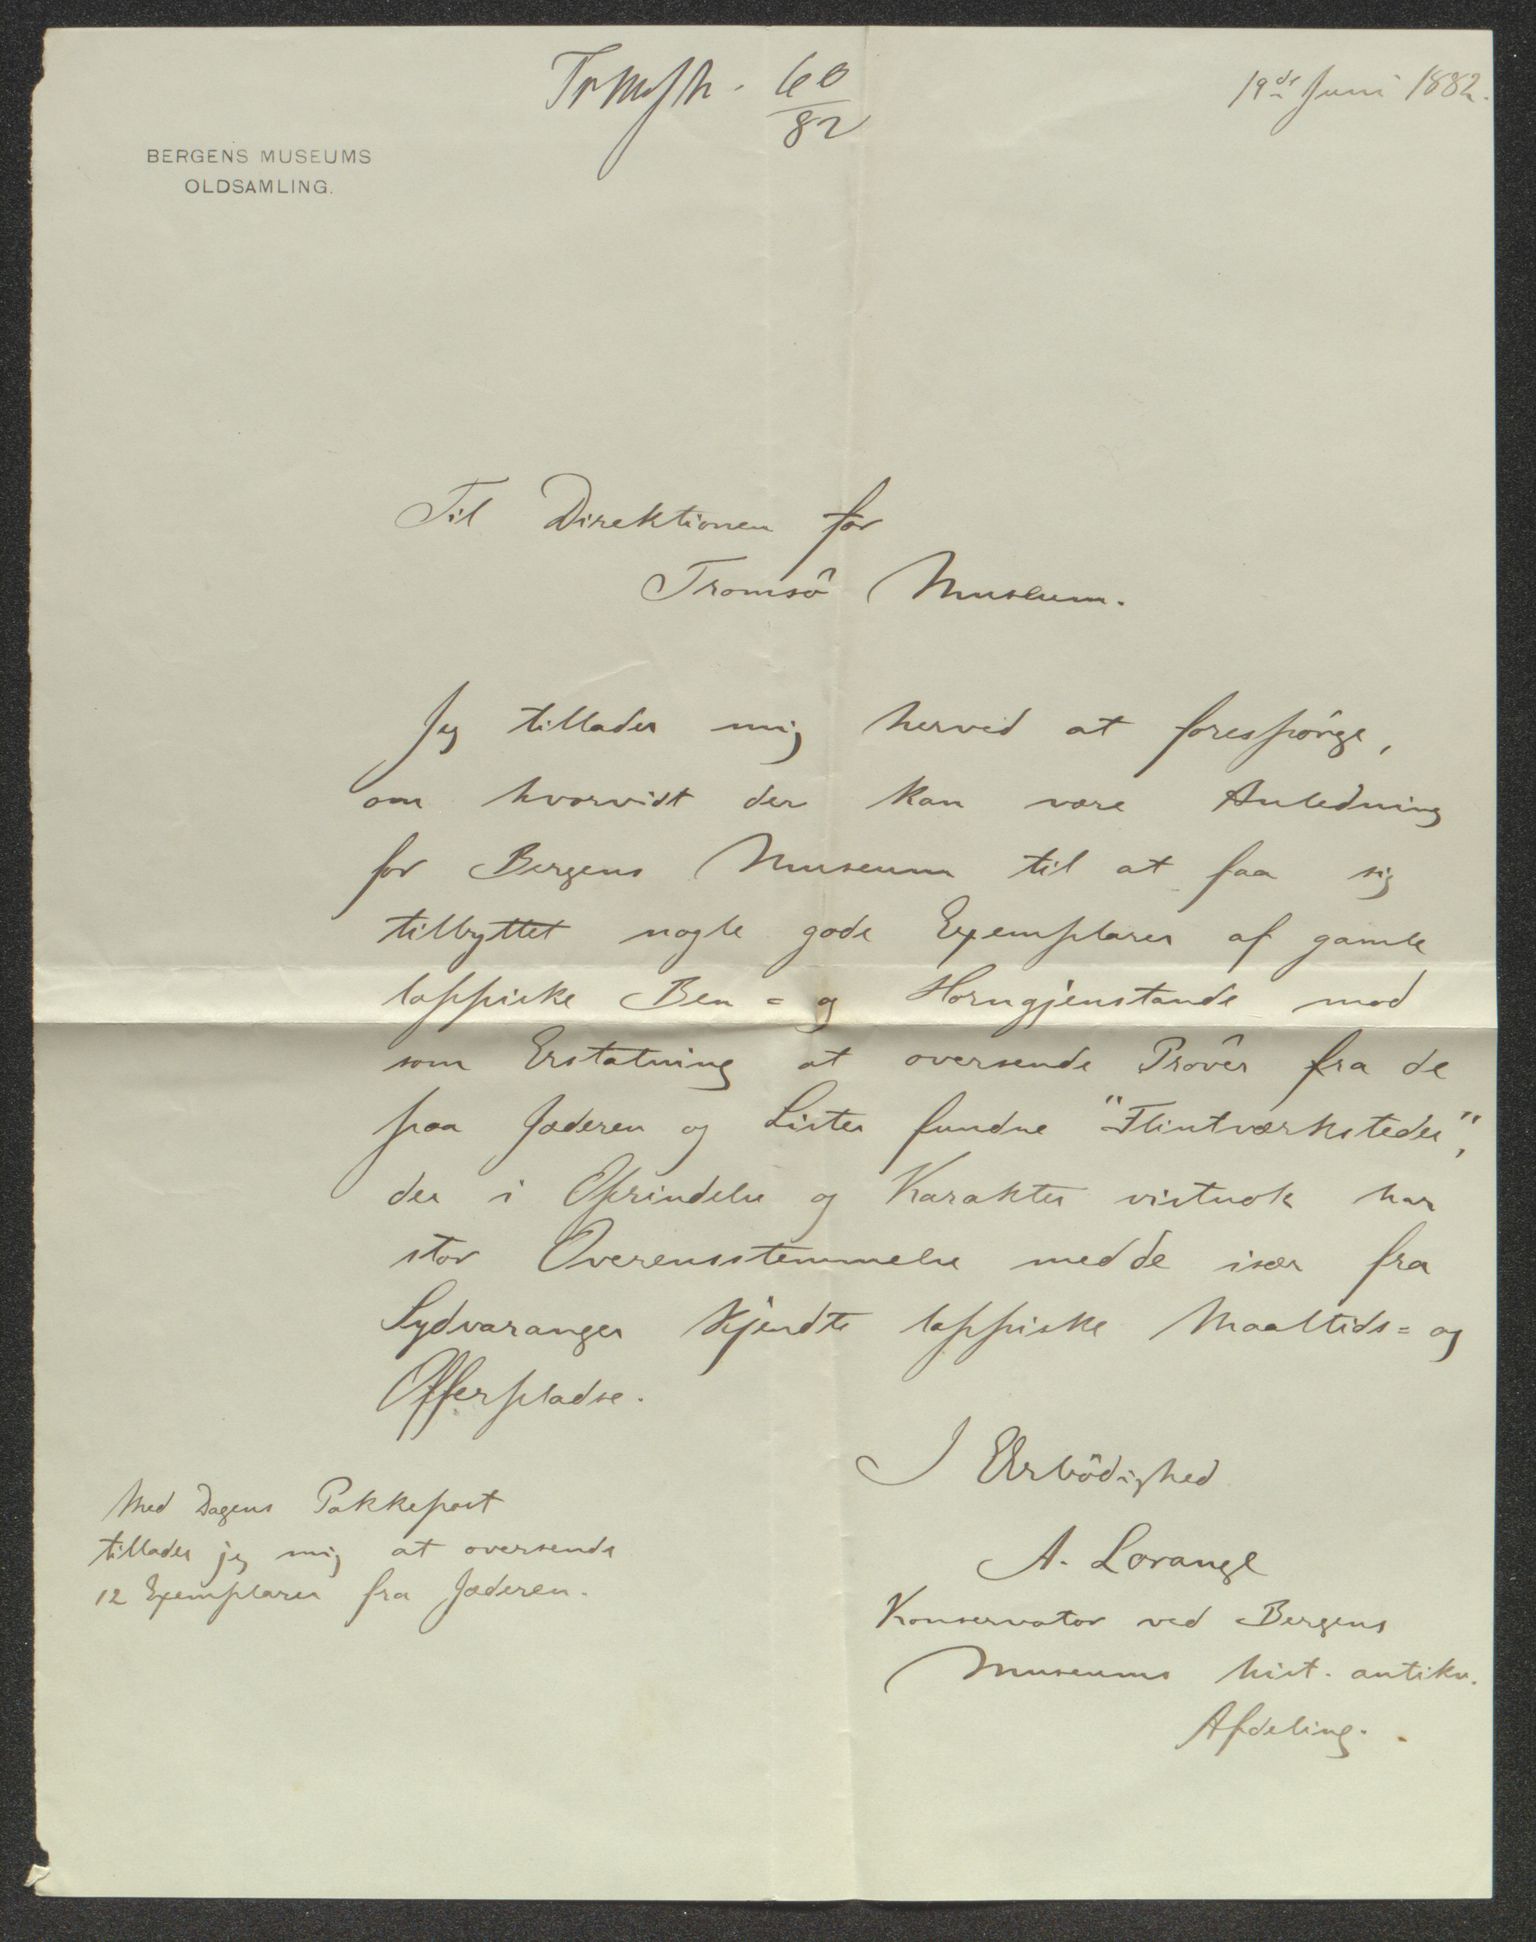 60
82
19de Juni 1882.
BERGENS MUSEUMS
OLDSAMLING.
Til Direktionen for
Tromsö Museum.
Jeg tillader mig herved at forespörge,
om hvorvidt der kan være Anledning
for Bergens Museum til at faa sig
tilbyttet nogle gode Exemplarer af gamle
lappiske Ben= og Horngjenstande mod
som Erstatning at oversende Pröver fra de
paa Jæderen og Lister fundne "Flintværksteder",
der i Oprindelse og Karakter vistnok har
stor Overensstemmelse med de især fra
Sydvaranger kjendte lappiske Maaltids= og
Offerpladse.
I Ærbödighed
A. Lorange
Konservator ved Bergens
Museums hist. antikv.
Afdeling.
Med Dagens Pakkepost
tillader jeg mig at oversende
12 Exemplarer fra Jæderen.